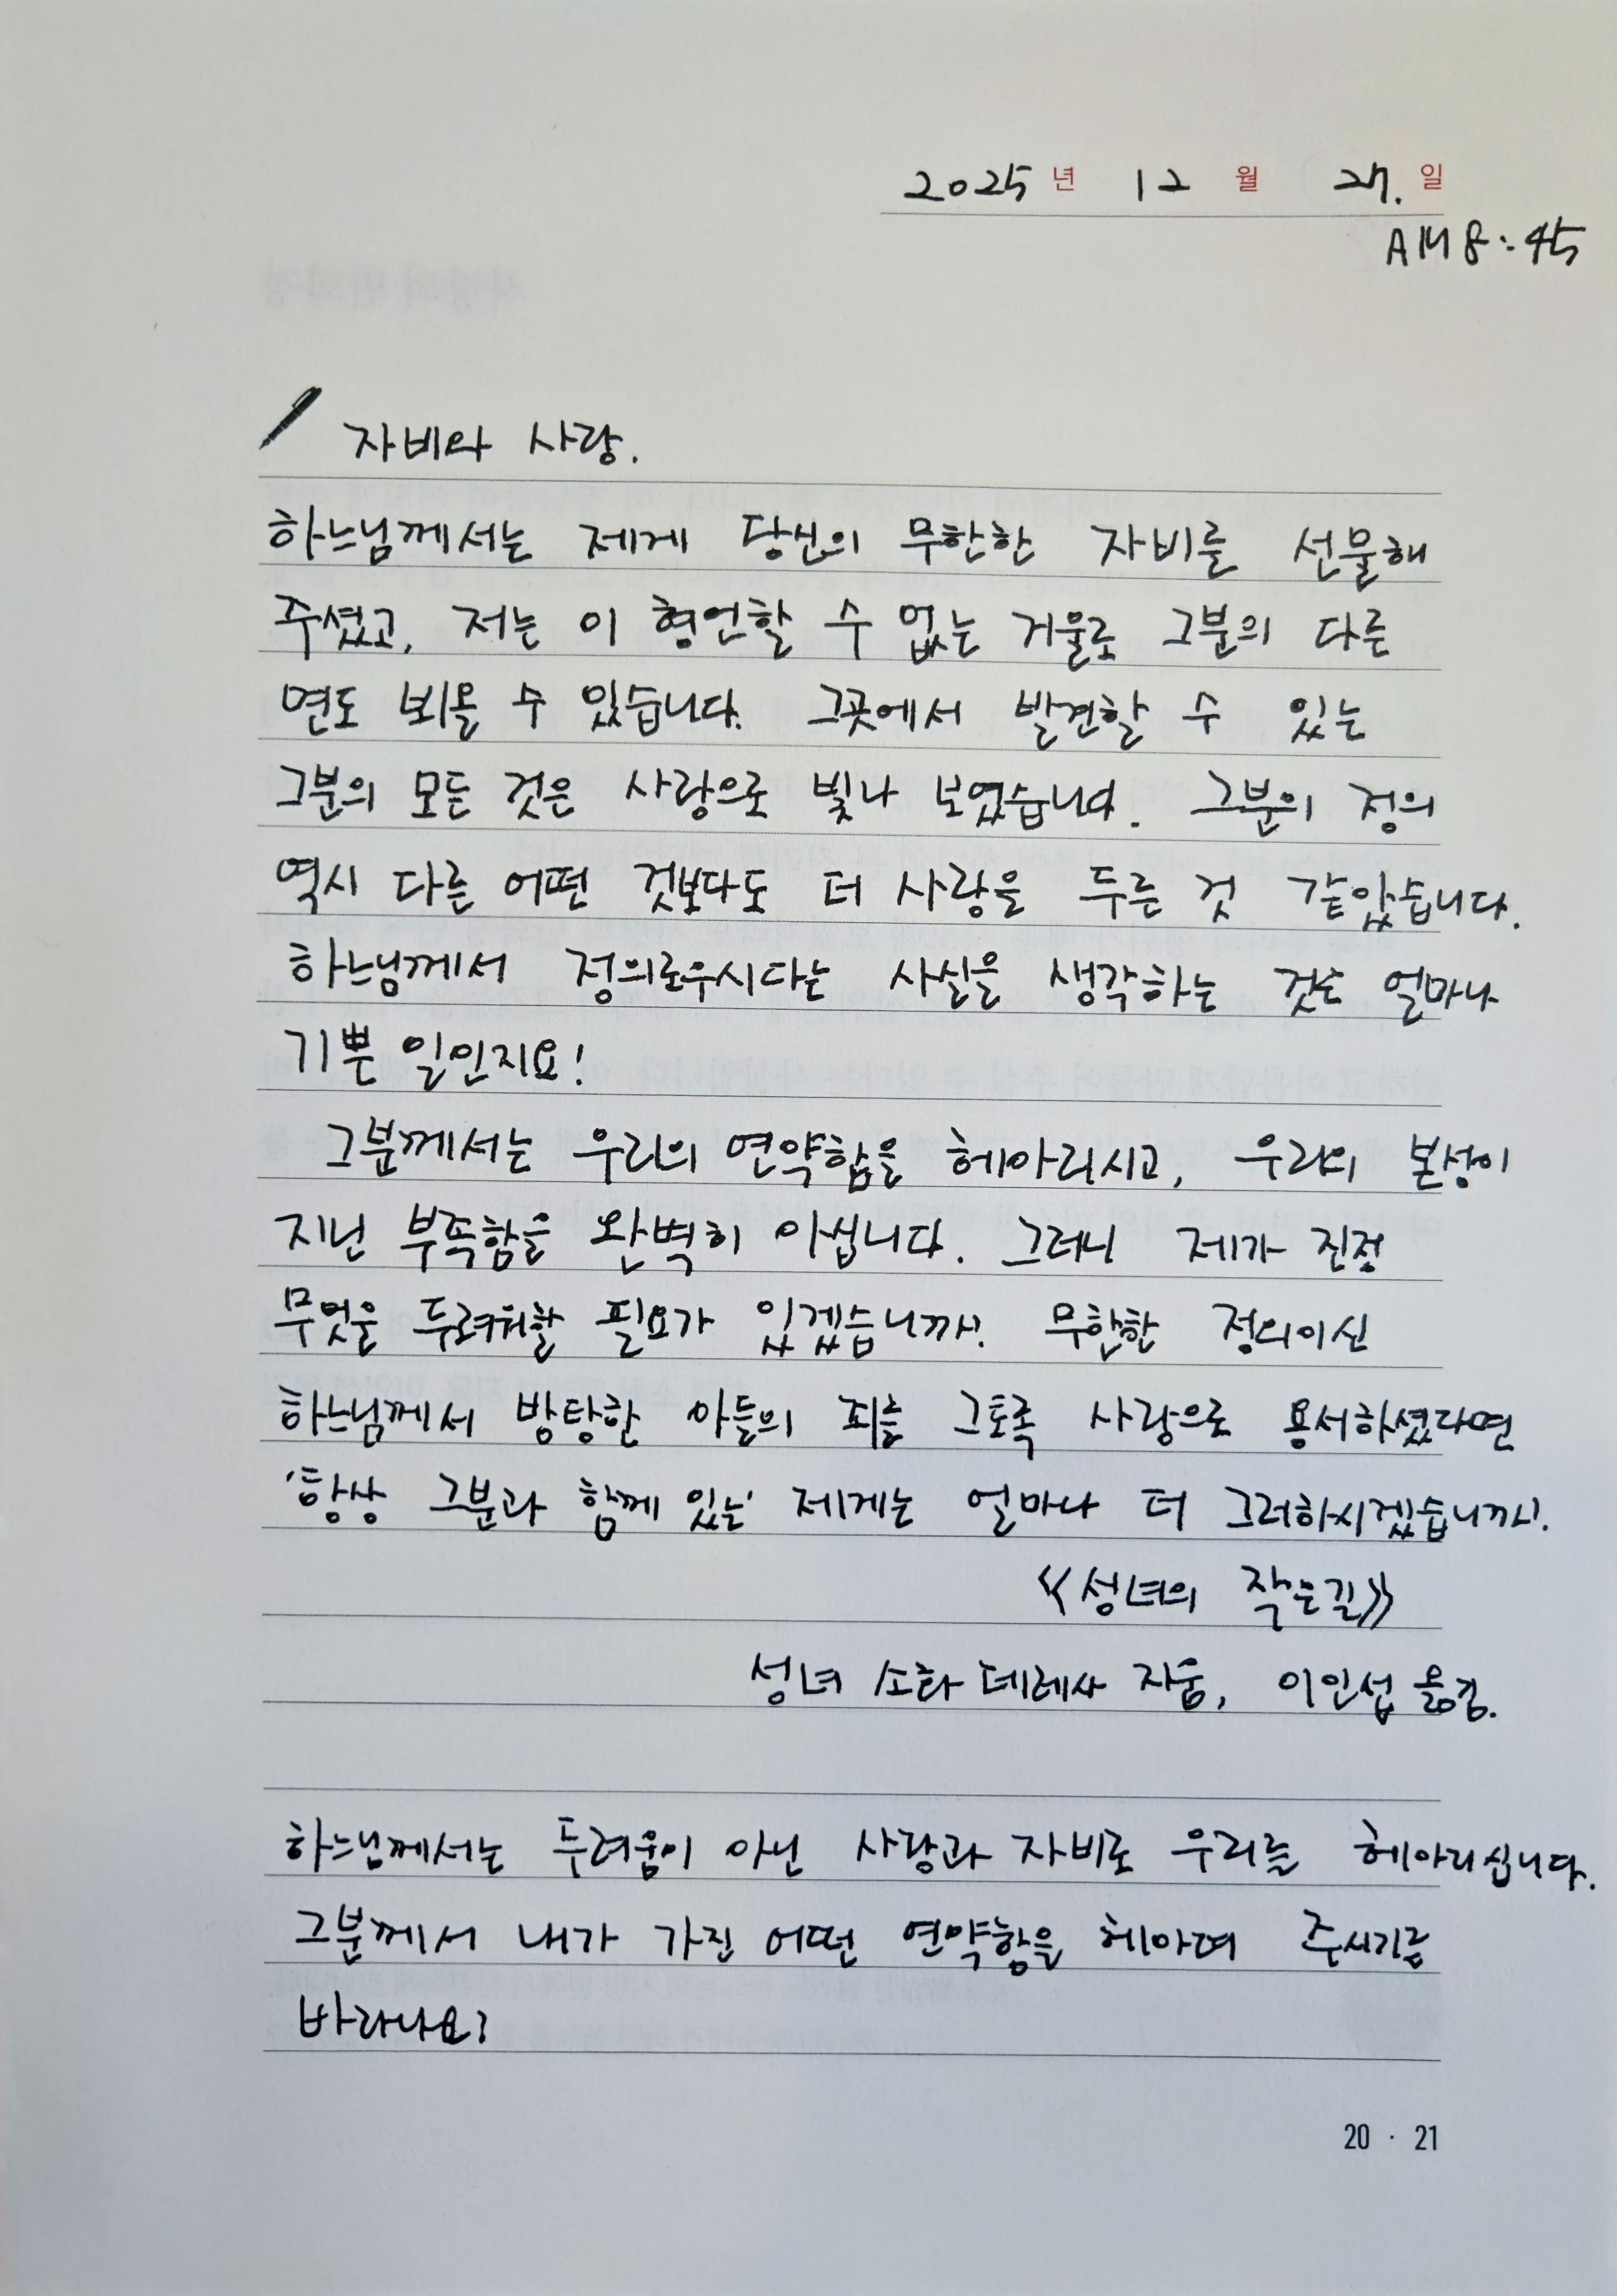 2025 년 12 월 27. 일
AM 8:45
자비와 사랑.
하느님께서는 제게 당신의 무한한 자비를 선물해
주셨고, 저는 이 형언할 수 없는 거울로 그분의 다른
면도 뵈올 수 있습니다. 그곳에서 발견할 수 있는
그분의 모든 것은 사랑으로 빛나 보였습니다. 그분의 정의
역시 다른 어떤 것보다도 더 사랑을 두른 것 같았습니다.
하느님께서 정의로우시다는 사실을 생각하는 것은 얼마나
기쁜 일인지요!
그분께서는 우리의 연약함을 헤아리시고, 우리의 본성이
지닌 부족함을 완벽히 아십니다. 그러니 제가 진정
무엇을 두려워할 필요가 있겠습니까! 무한한 정의이신
하느님께서 방탕한 아들의 죄를 그토록 사랑으로 용서하셨다면
'항상 그분과 함께 있는' 제게는 얼마나 더 그러하시겠습니까!.
《성녀의 작은길》
성녀 소화 데레사 지음, 이인섭 옮김.
하느님께서는 두려움이 아닌 사랑과 자비로 우리를 헤아리십니다.
그분께서 내가 가진 어떤 연약함을 헤아려 주시기를
바라나요?
20 · 21